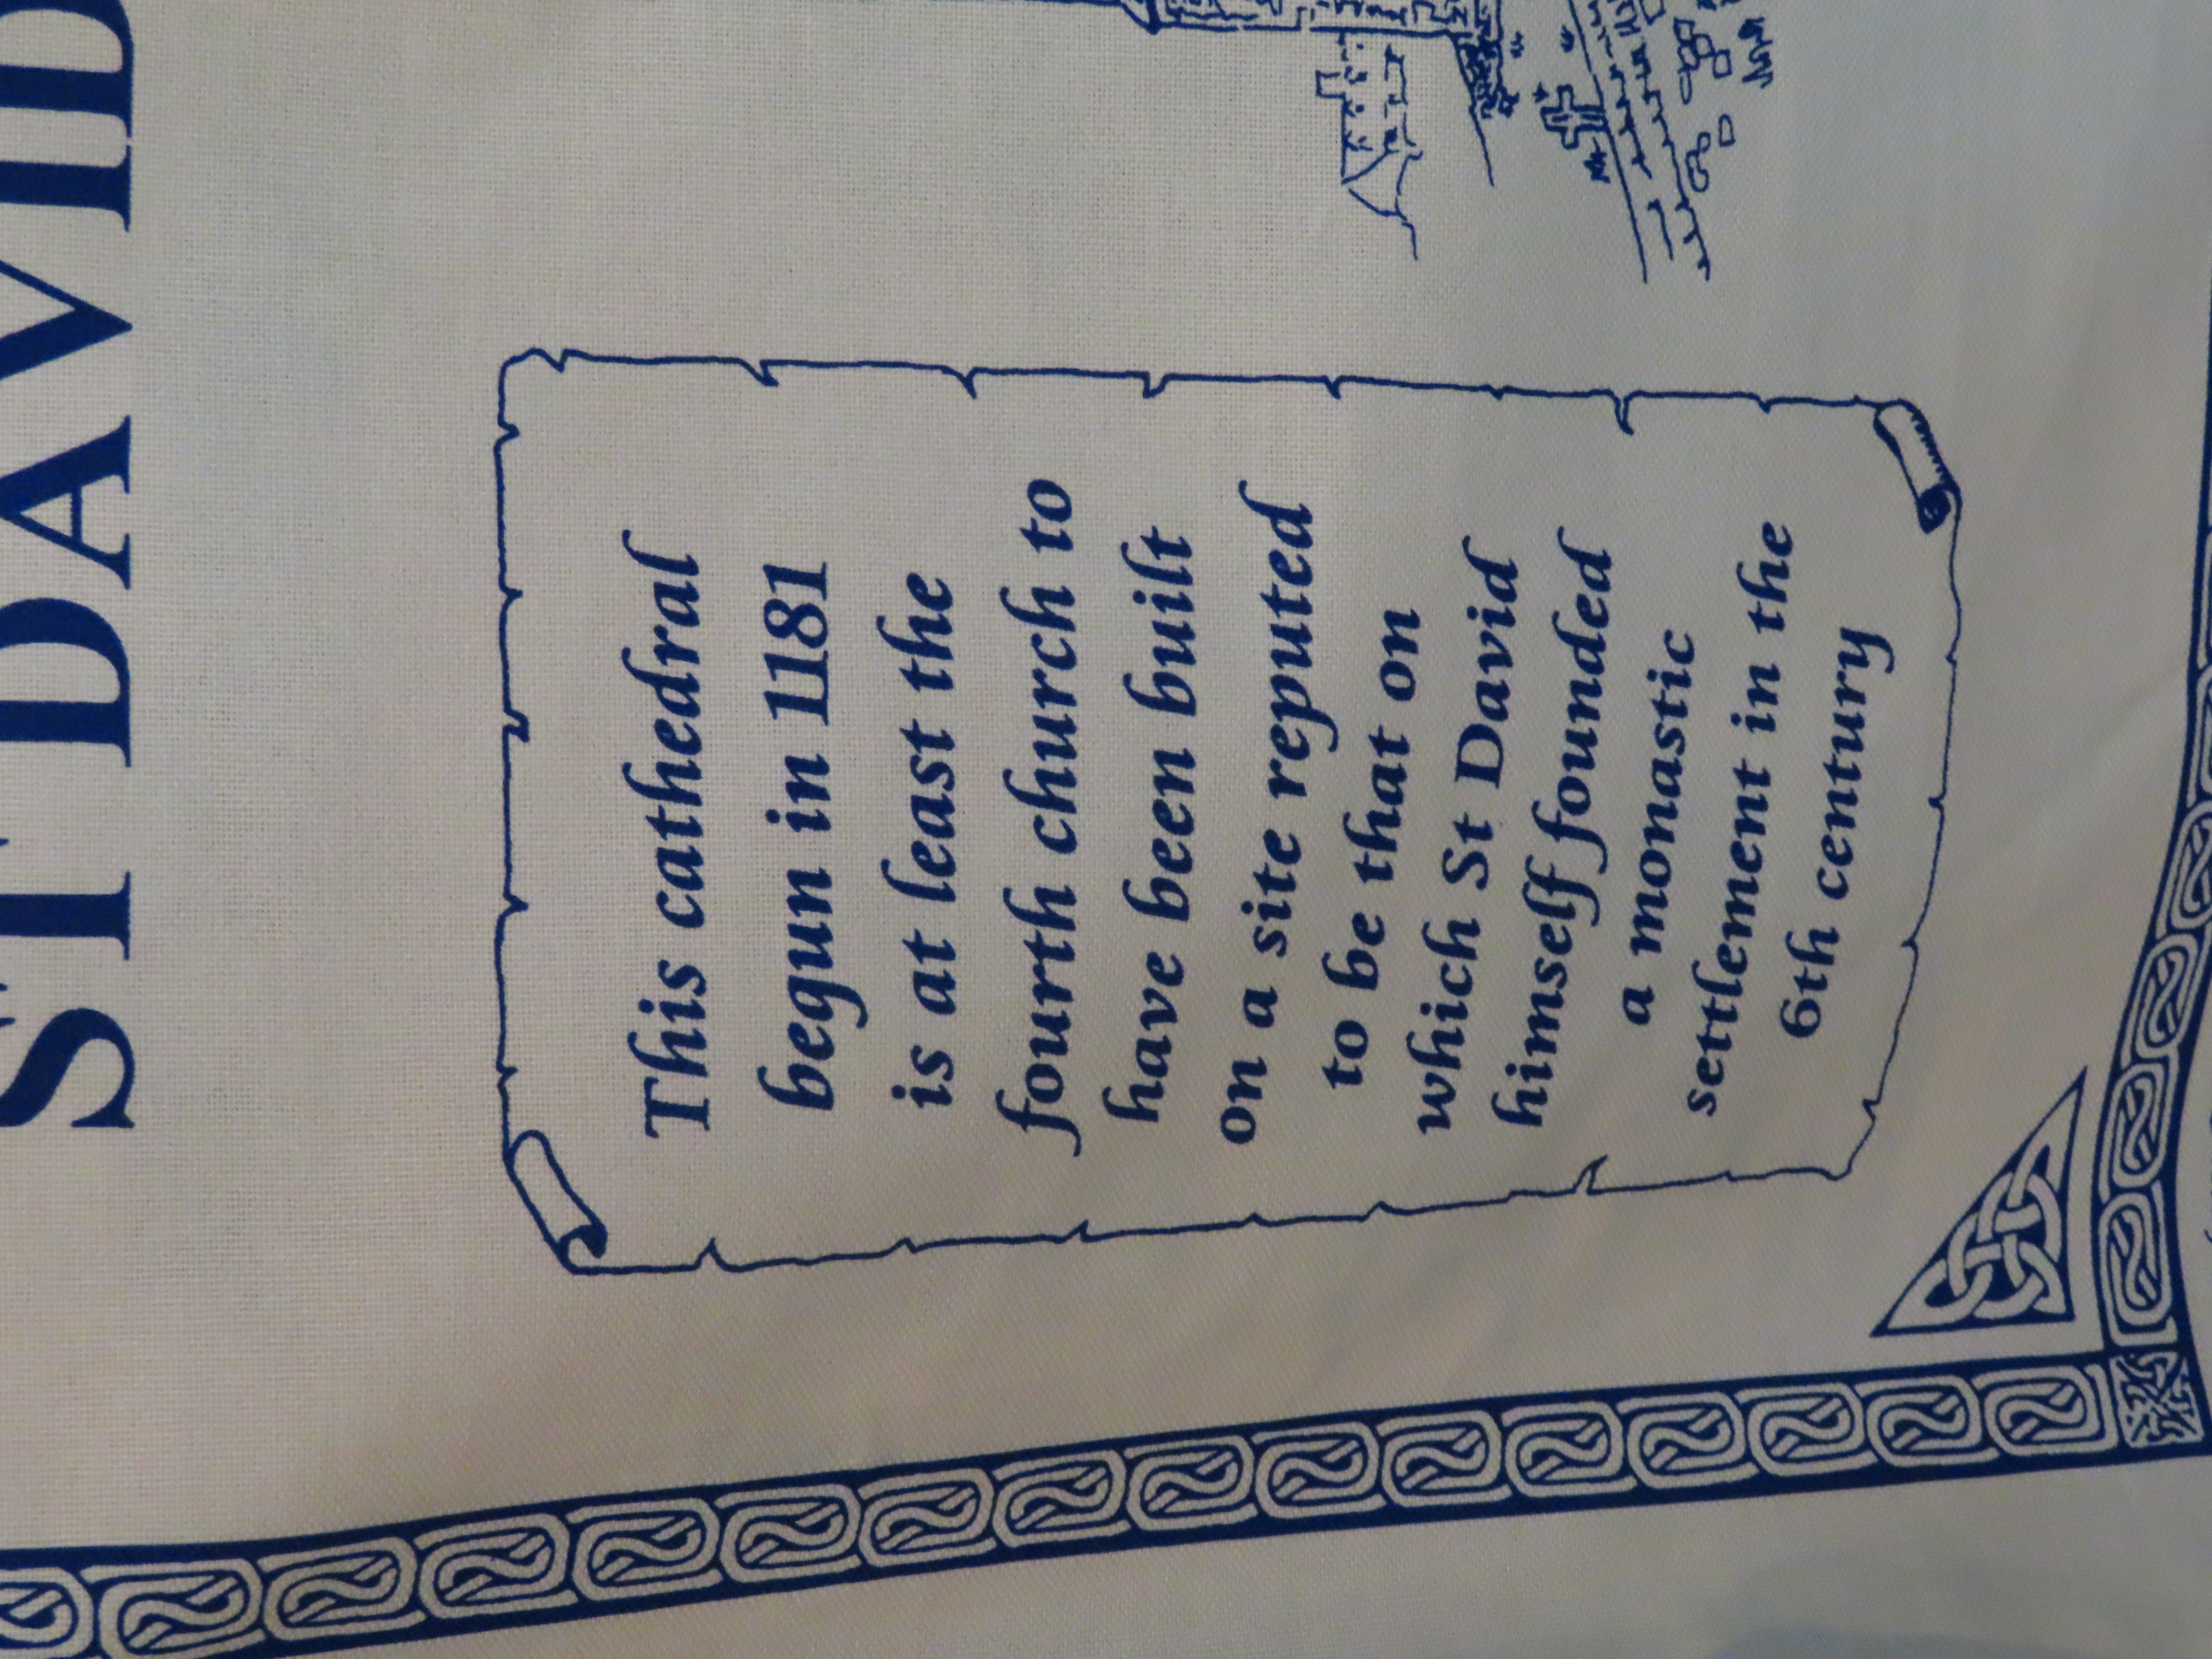 ST DAVID
This cathedral
begun in 1181
is at least the
fourth church to
have been built
on a site reputed
to be that on
which St David
himself founded
a monastic
settlement in the
6th century